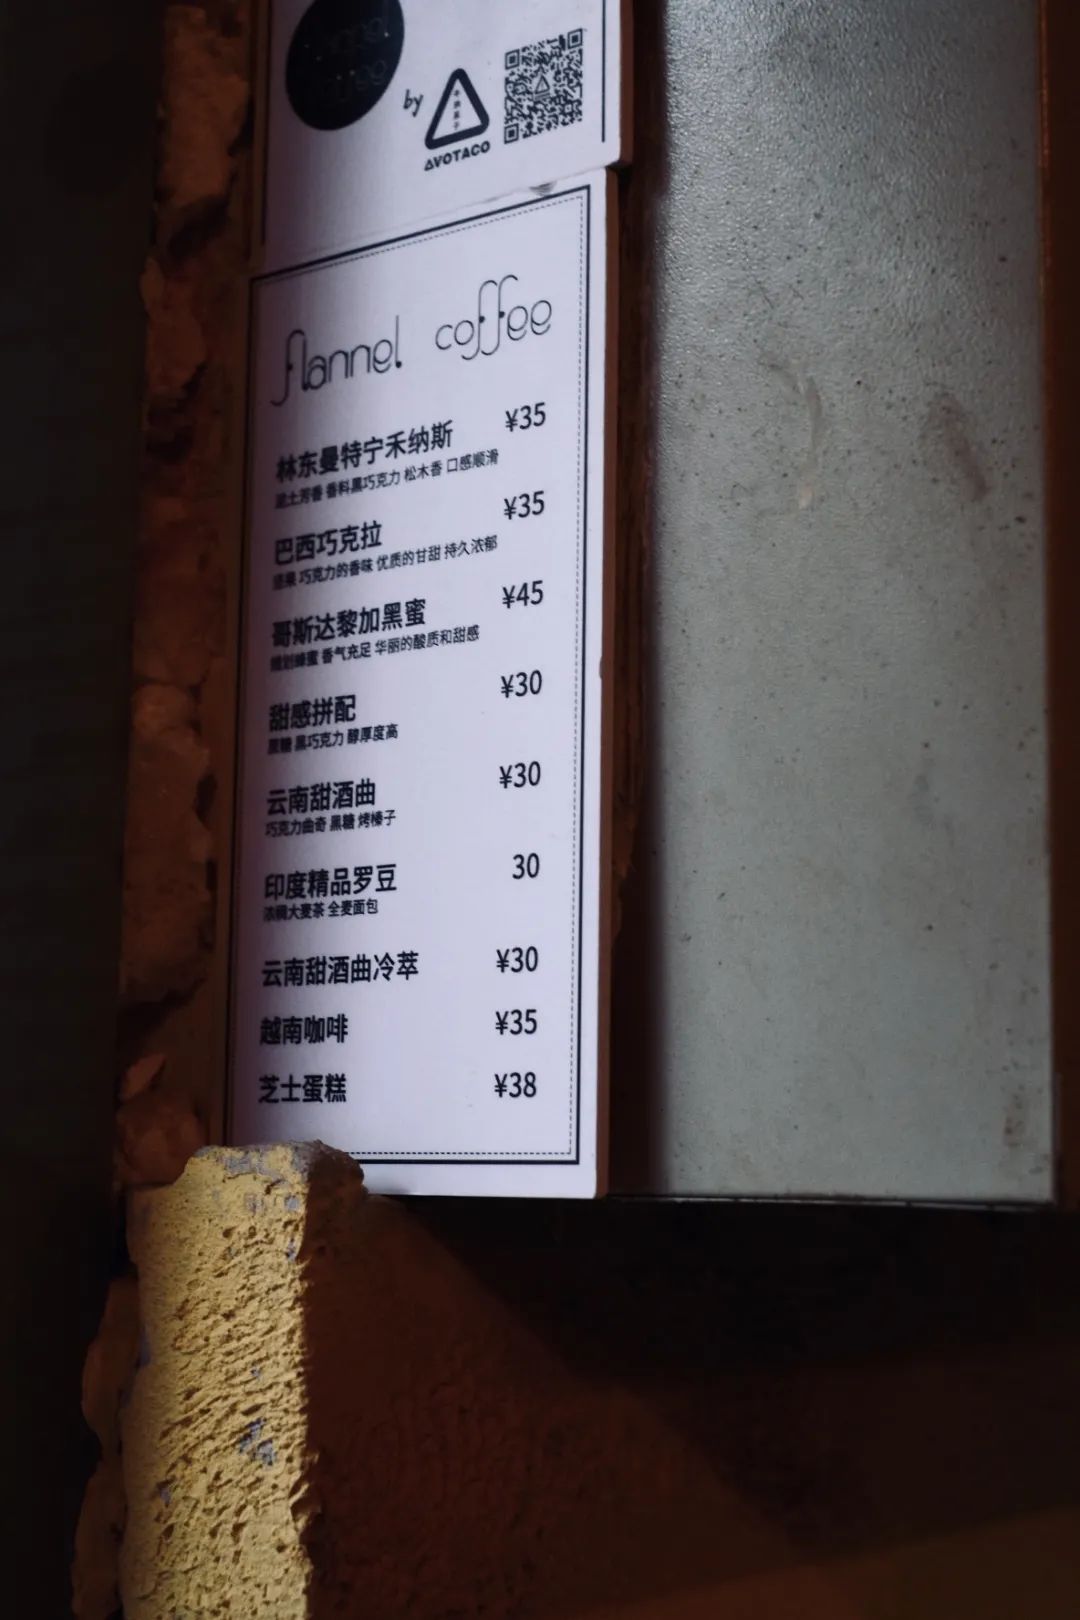 by
牛油果子
AVOTACO
flannel coffee
林东曼特宁禾纳斯 ¥35
泥土芳香 香料黑巧克力 松木香 口感顺滑
巴西巧克拉 ¥35
坚果 巧克力的香味 优质的甘甜 持久浓郁
哥斯达黎加黑蜜 ¥45
蜂蜜 香气充足 华丽的酸质和甜感
甜感拼配 ¥30
黑糖 黑巧克力 醇厚度高
云南甜酒曲 ¥30
巧克力曲奇 黑糖 烤榛子
印度精品罗豆 30
浓稠大麦茶 全麦面包
云南甜酒曲冷萃 ¥30
越南咖啡 ¥35
芝士蛋糕 ¥38